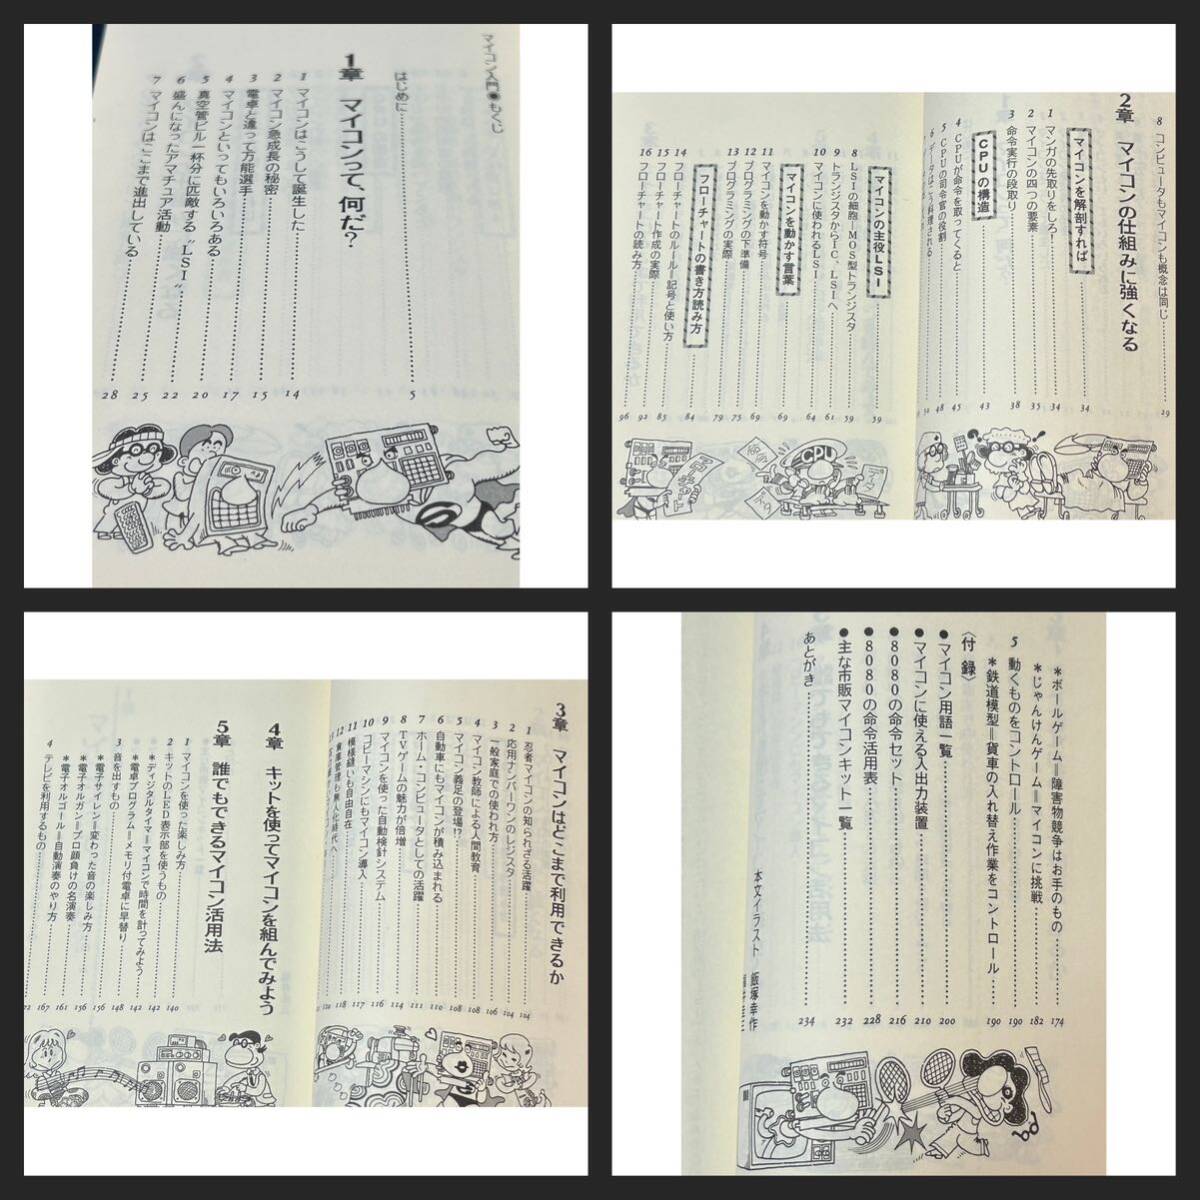 マイコン入門●もくじ
はじめに 5
1章 マイコンって、何だ?
1 マイコンはこうして誕生した 14
2 マイコン急成長の秘密 15
3 電卓と違って万能選手 17
4 マイコンといってもいろいろある 20
5 真空管ビル一杯分に匹敵する“LSI” 22
6 盛んになったアマチュア活動 25
7 マイコンはここまで進出している 28
8 コンピュータもマイコンも概念は同じ 29
2章 マイコンの仕組みに強くなる
マイコンを解剖すれば 34
1 マンガの先取りをしろ! 34
2 マイコンの四つの要素 35
3 命令実行の段取り 38
CPUの構造 43
4 CPUが命令を取ってくると 45
5 CPUの司令官の役割 48
6 データはこう料理される
マイコンの主役LSI 59
8 LSIの細胞—MOS型トランジスタ 59
9 トランジスタからIC、LSIへ 61
10 マイコンに使われるLSI 64
マイコンを動かす言葉 69
11 マイコンを動かす符号 69
12 プログラミングの下準備 75
13 プログラミングの実際 79
フローチャートの書き方読み方 84
14 フローチャートのルール=記号と使い方 85
15 フローチャート作成の実際 92
16 フローチャートの読み方 96
CPU
3章 マイコンはどこまで利用できるか
1 忍者マイコンの知られざる活躍 104
2 応用ナンバーワンのレジスタ 104
3 一般家庭での使われ方 106
4 マイコン教師による人間教育 108
5 マイコン義足の登場!? 108
6 自動車にもマイコンが積み込まれる 110
7 ホーム・コンピュータとしての活躍 111
8 TVゲームの魅力が倍増 114
9 マイコンを使った自動検針システム 116
10 コピーマシンにもマイコン導入 117
11 模様縫いも自由自在 118
12 倉庫管理も無人化時代へ
4章 キットを使ってマイコンを組んでみよう
5章 誰でもできるマイコン活用法
1 マイコンを使った楽しみ方 140
2 キットのLED表示部を使うもの 142
*ディジタルタイマ=マイコンで時間を計ってみよう 142
*電卓プログラム=メモリ付電卓に早替り 148
3 音を出すもの 156
*電子サイレン=変わった音の楽しみ方 156
*電子オルガン=プロ顔負けの名演奏 161
*電子オルゴール=自動演奏のやり方 167
4 テレビを利用するもの
*ボールゲーム=障害物競争はお手のもの 174
*じゃんけんゲーム=マイコンに挑戦 182
5 動くものをコントロール 190
*鉄道模型=貨車の入れ替え作業をコントロール 190
〈付録〉
●マイコン用語一覧 200
●マイコンに使える入出力装置 210
●8080の命令セット 216
●8080の命令活用表 228
●主な市販マイコンキット一覧 232
あとがき 234
本文イラスト 飯塚幸作